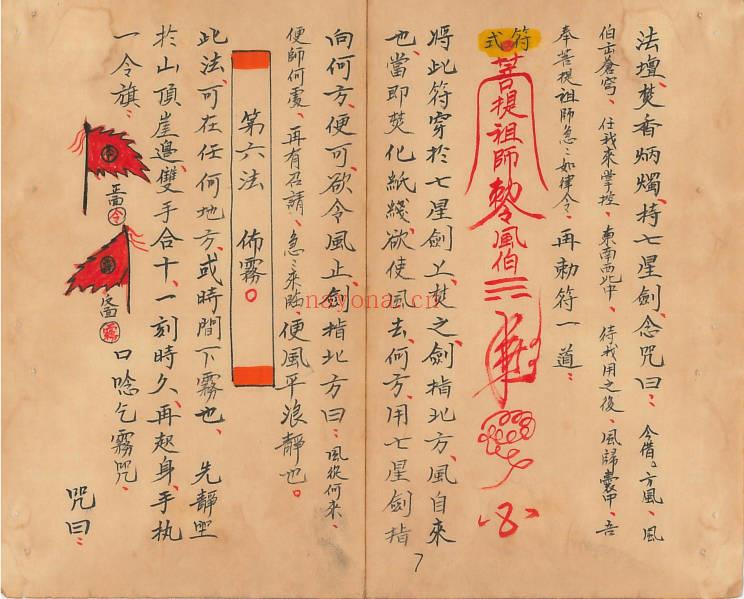 法壇、焚香炳燭、持七星劍、念咒曰： 今借。方風、風
伯　蒼穹、任我來掌控、東南西北中、待我用之後、風歸囊中、吾
奉菩提祖師急ミ如律令、再勅符一道：
符式
菩提祖師勅令風伯
將此符穿於七星劍上、焚之、劍指北方、風自來
也、當即焚化紙錢、欲使風去、何方、用七星劍指
7
向何方、便可、欲令風止、劍指北方曰：風從何來、
便師何處、再有召請、急ミ來臨、便風平浪靜也。
第六法　佈霧。
此法、可在任何地方、或時間下霧也、先靜坐
於山頂崖邊、雙手合十、一刻時久、再起身、手执
一令旗、
正面令
反面霧
口唸乞霧咒、
咒曰：
nayona.cn